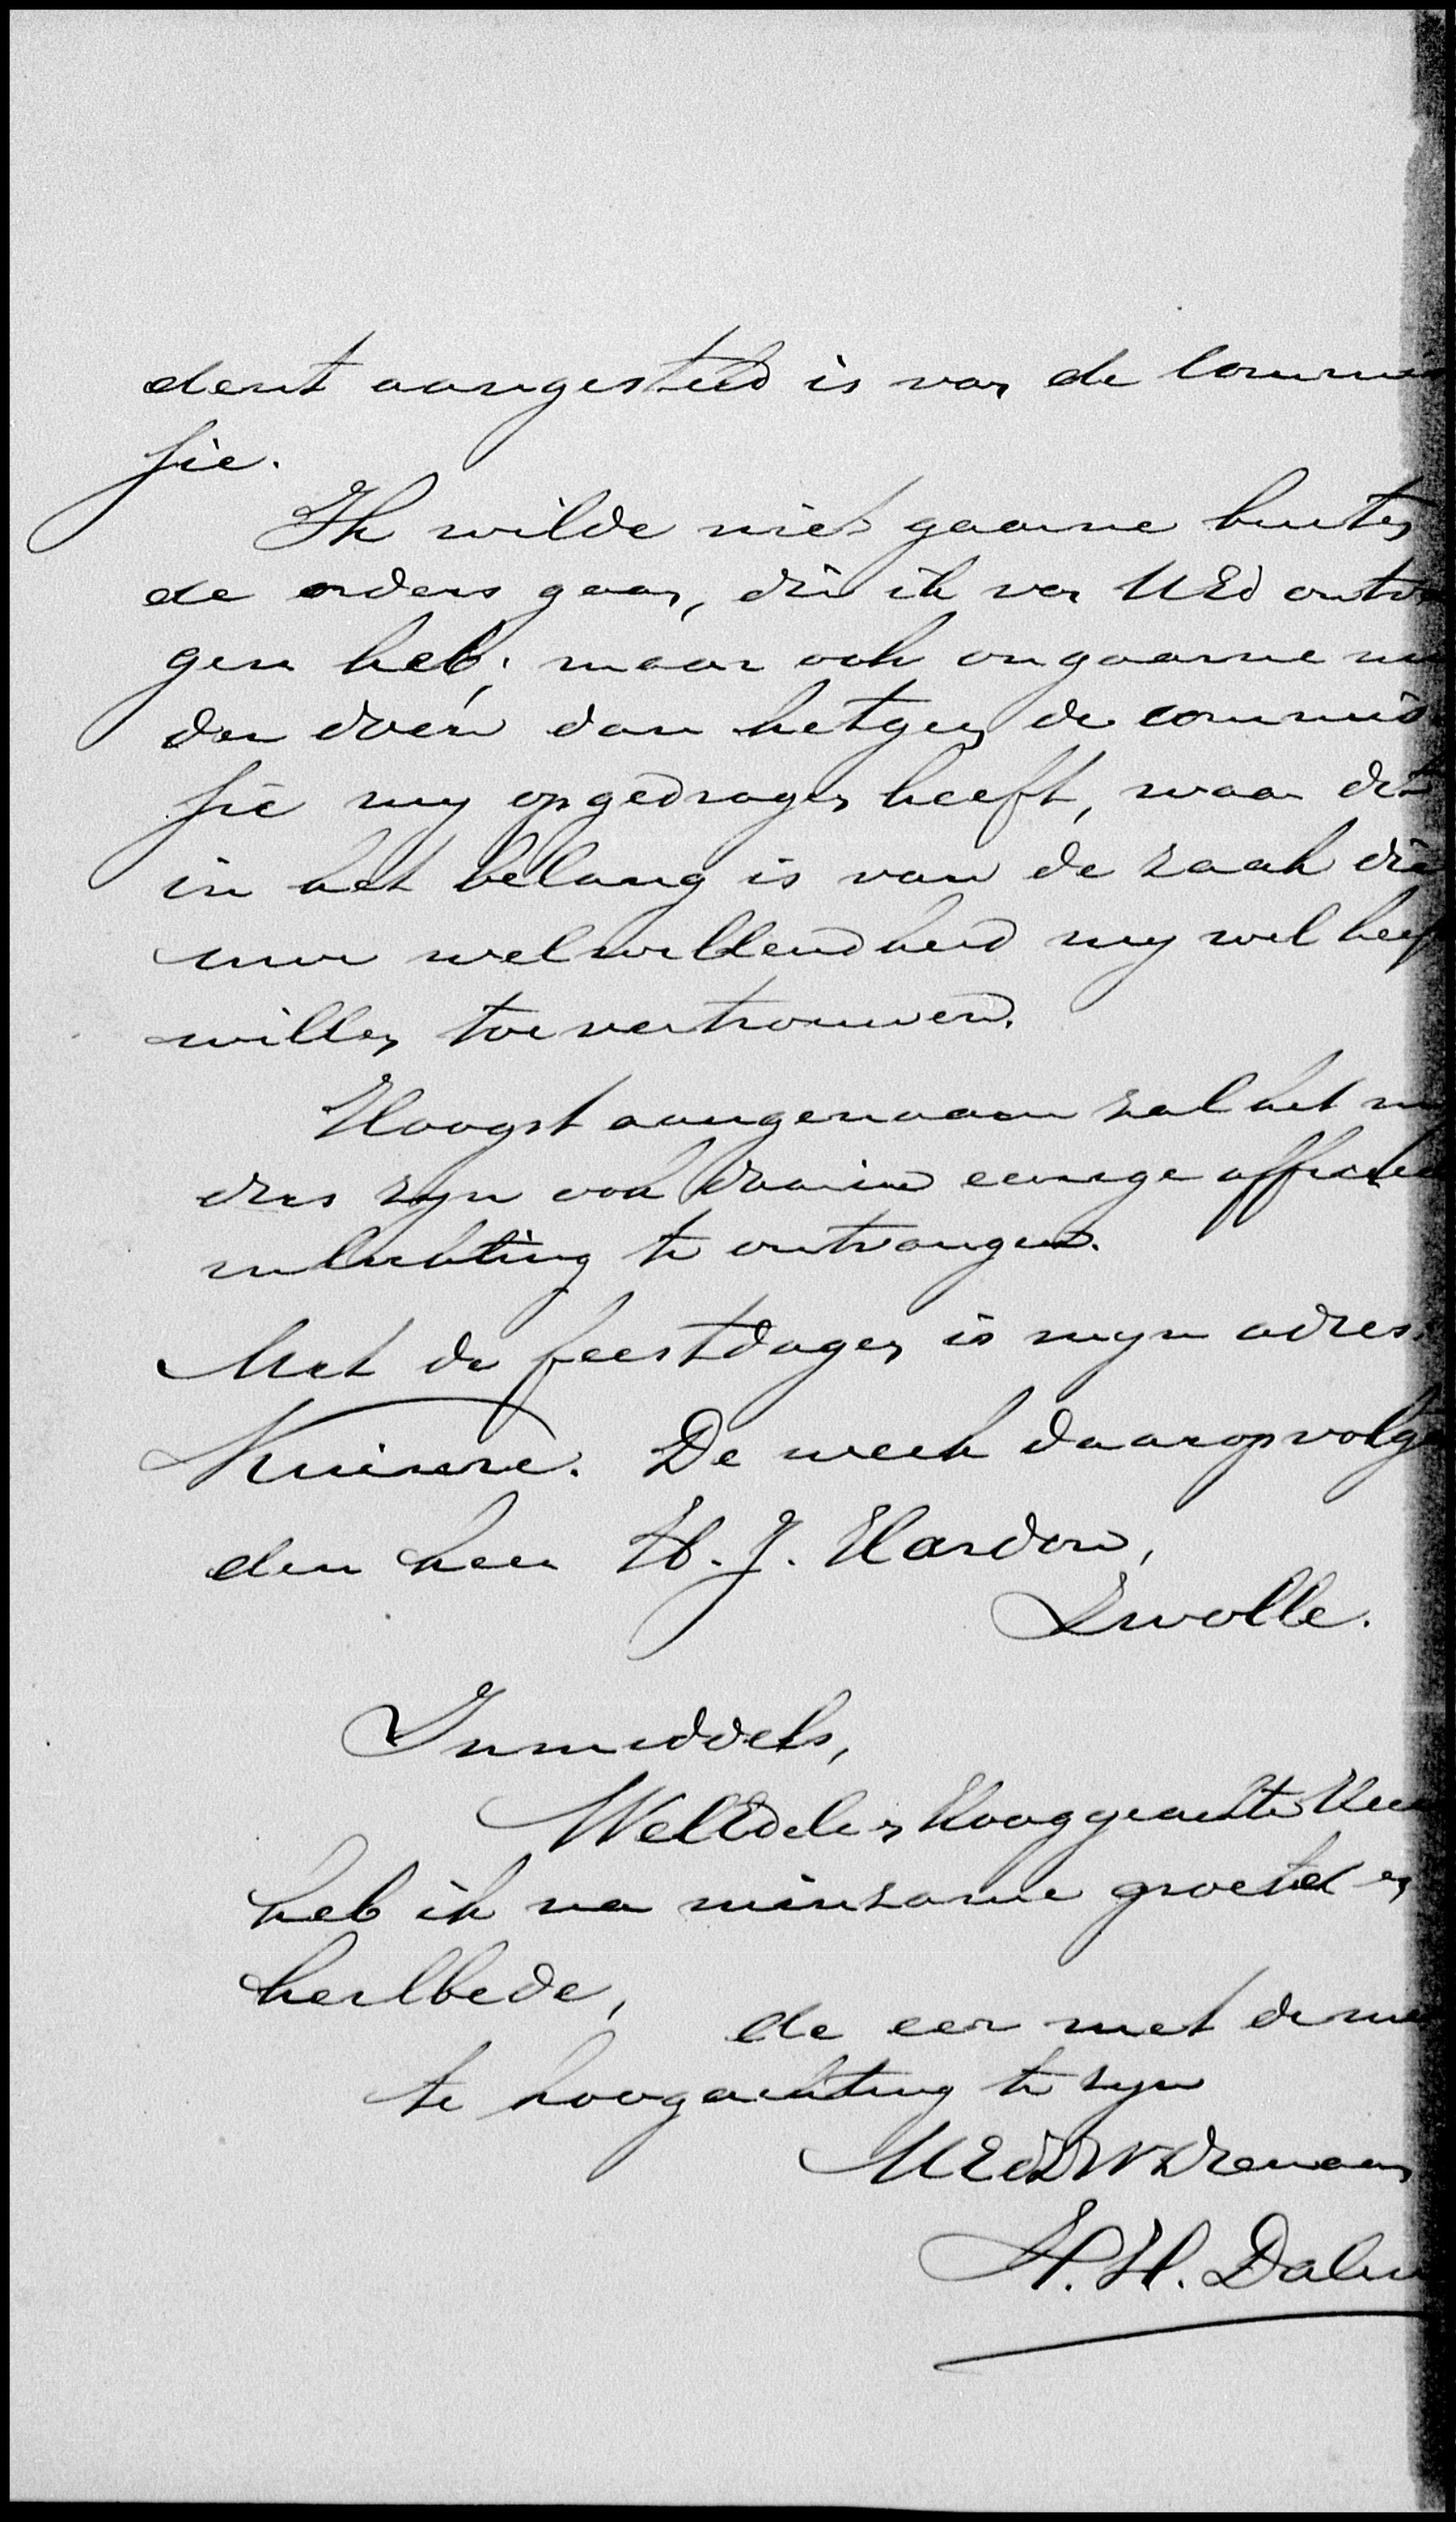 dent aangesteld is van de Commis
sie.
Ik wilde niet gaarne buiten
de orders gaan, die ik van UEd ontva
gen heb; maar ook ongaarne
der doen dan hetgeen de commis
sie my opgedragen heeft, waar dit
in het belang is van de zaak die
uwe welwillendheid my wel heef
willen toevertrouwen.
Hoogst aangenaam zal het my
dus zyn ook daarin eenige officieele
inlichting te ontvangen.
Met de feestdagen is myn adres
Kuinre. De week daaropvolge
den heer H. J. Hardon,
Zwolle.
Inmiddels,
WelEdele, Hooggeachte Heer
heb ik na minzame groete en
heilbede,
de eer met de mees
te hoogachting te zyn
UEdDWDienaar
H. Dalm